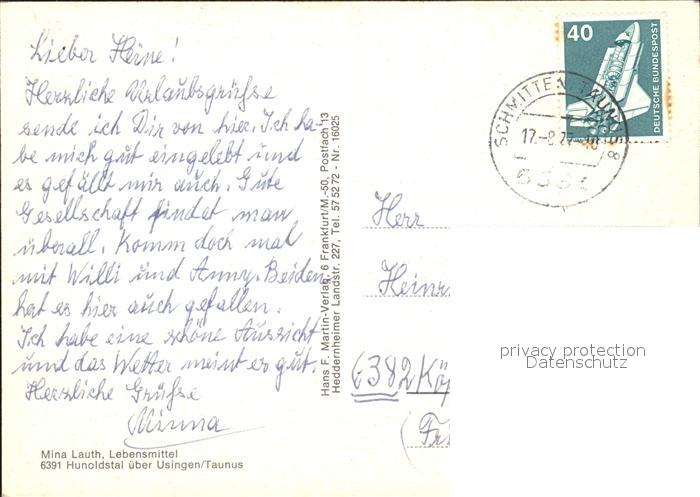 Lieber Heine!
Herzliche Urlaubsgrüsse
sende ich Dir von hier. Ich ha-
be mich gut eingelebt und
es gefällt mir auch. Gute
Gesellschaft findet man
überall. Komm doch mal
mit Willi und Anny. Beiden
hat es hier auch gefallen.
Ich habe eine schöne Aussicht
und das Wetter meint es gut.
Herzliche Grüsse
Minna
Mina Lauth, Lebensmittel
6391 Hunoldstal über Usingen/Taunus
Hans F. Martin-Verlag, 6 Frankfurt/M.-50, Postfach 13
Heddernheimer Landstr. 227, Tel. 57 52 72 - Nr. 16025
40
DEUTSCHE BUNDESPOST
SCHMITTEN, TAUNUS
17.-8.77
Herr
Heinr
6382 Köp
(Fri
privacy protection
Datenschutz